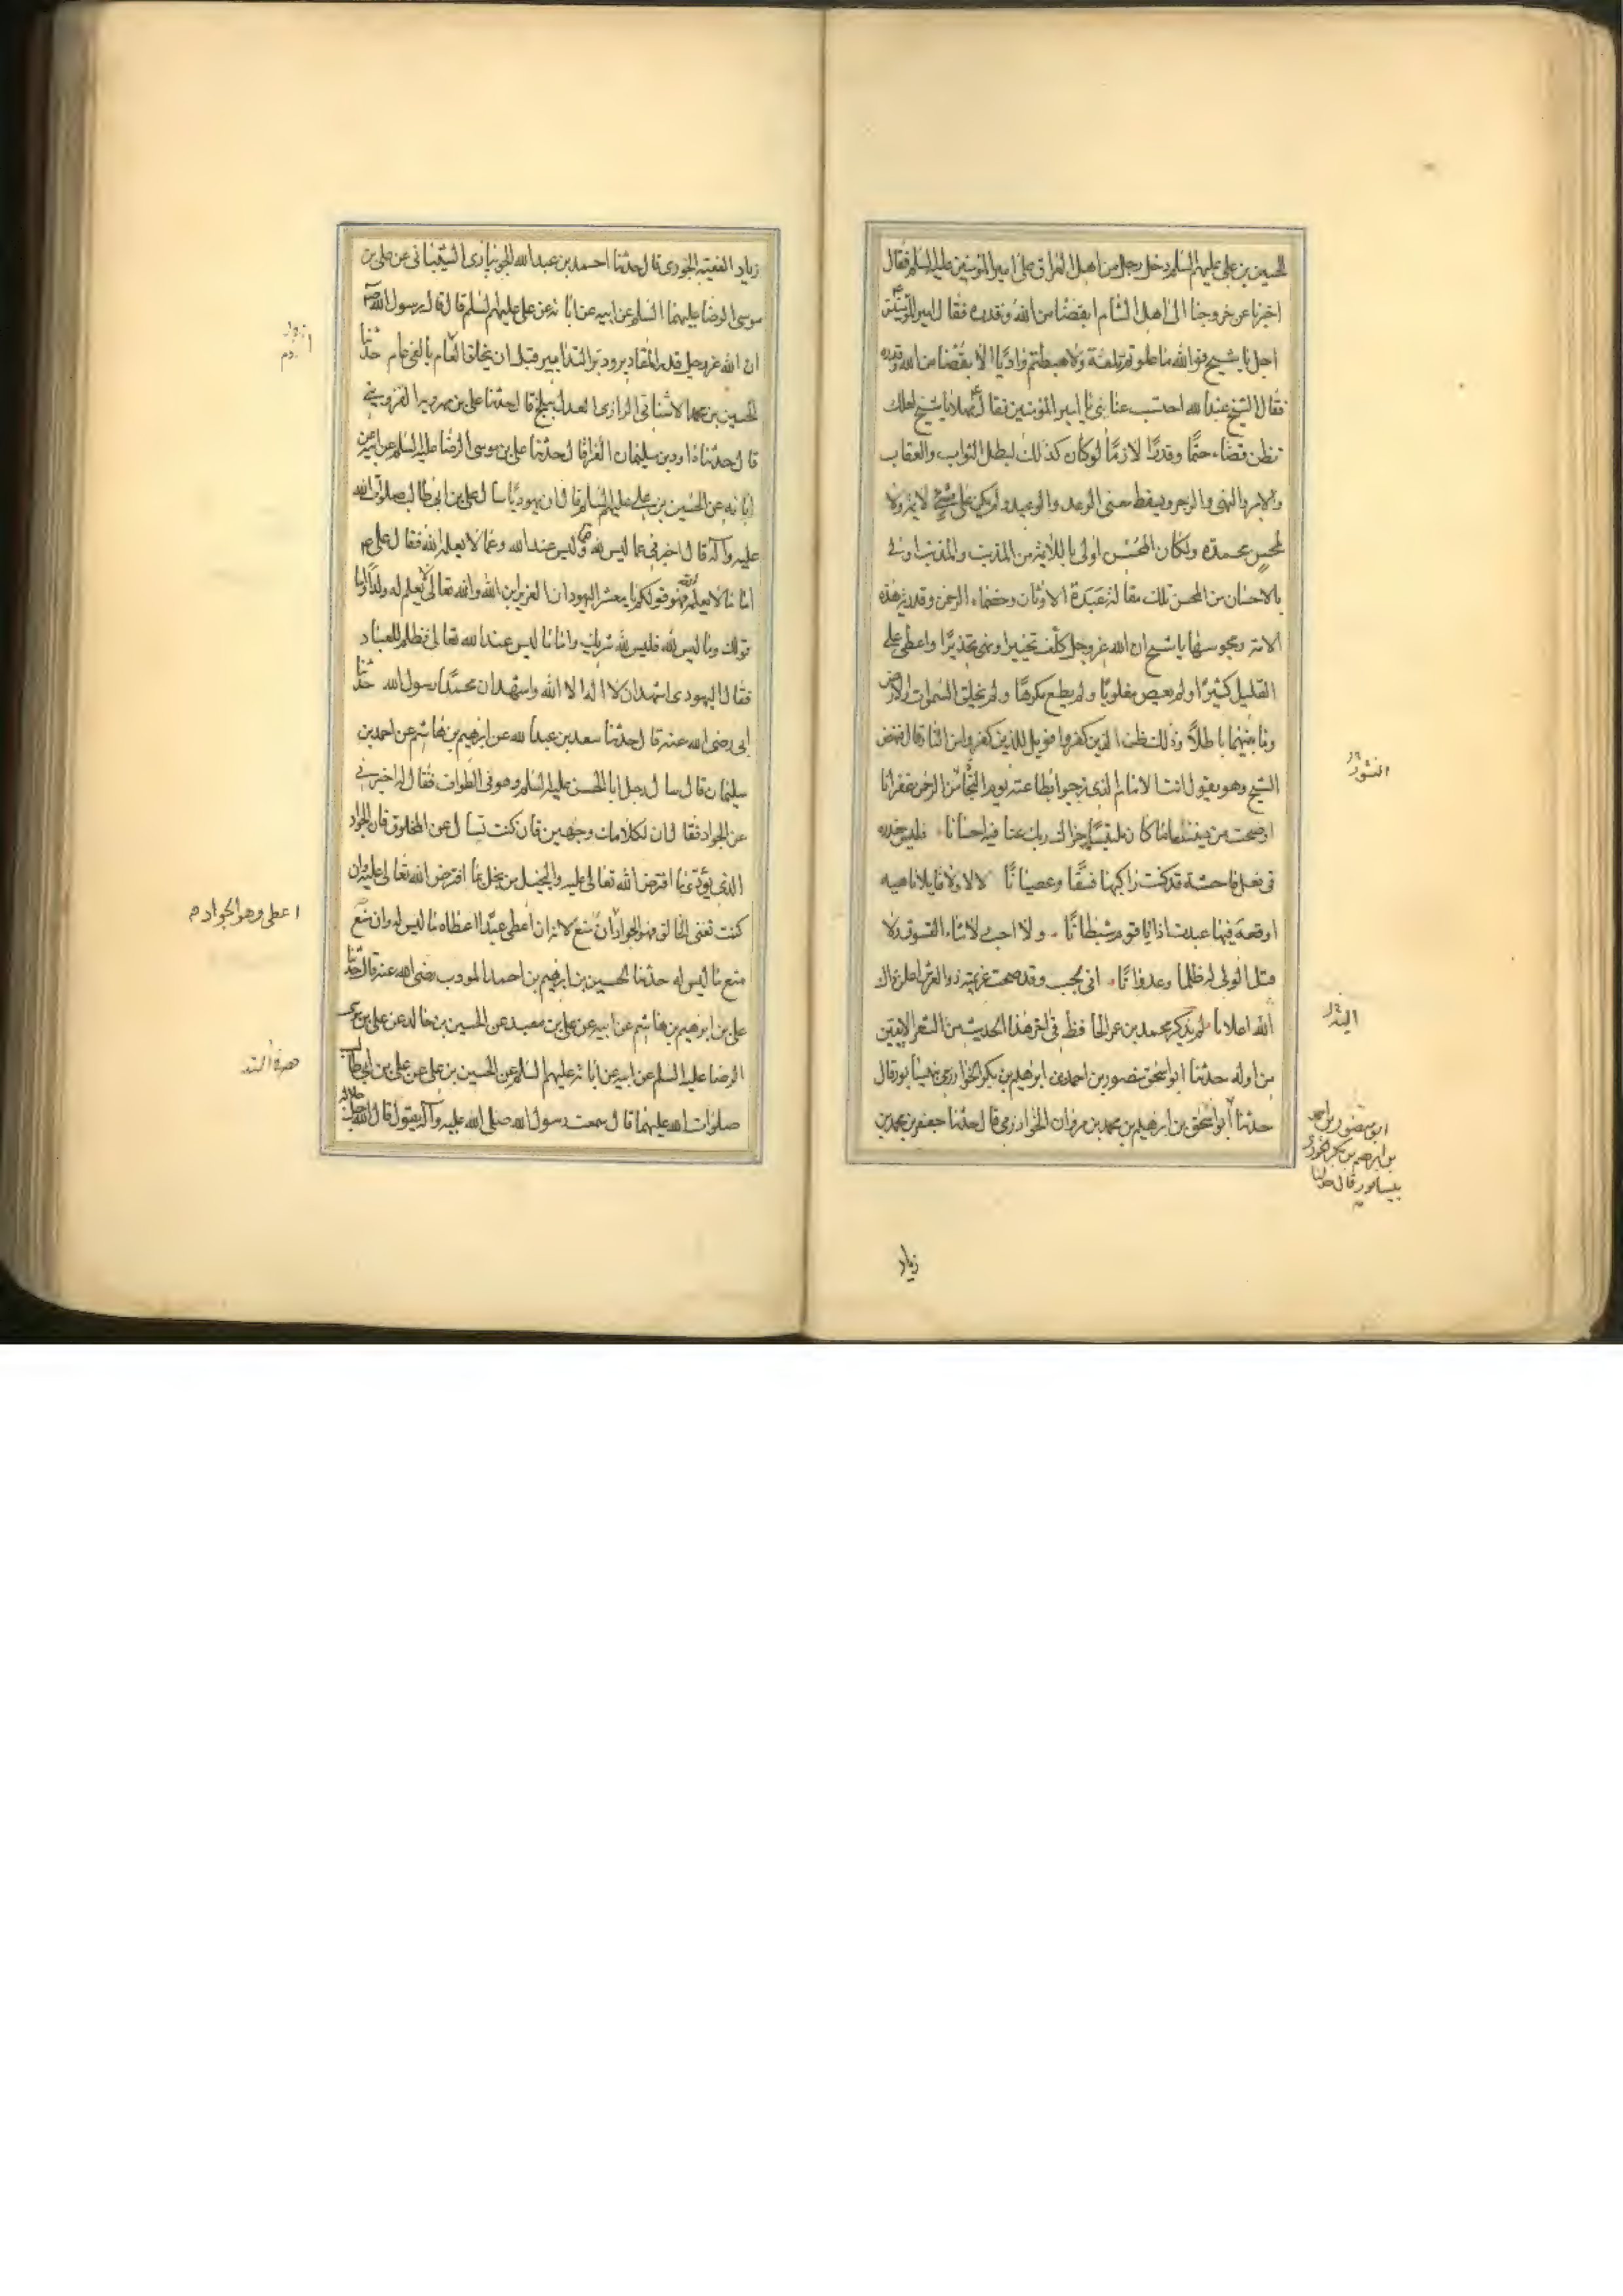 الحسين بن علي عليهم السلم دخل رجل من اهل العراق على امير المؤمنين عليه السلم فقال
اخبرنا عن خروجنا الى اهل الشام ابقضا من الله وقدره فقال امير المؤمنين
اجل يا شيخ فو الله ما علوتم تلعة ولا هبطتم واديا الا بقضا من الله وقدره
فقال الشيخ عند الله احتسب عنائي يا امير المؤمنين فقال مهلا يا شيخ لعلك
تظن قضاء حتما وقدرا لازما لو كان كذلك لبطل الثواب والعقاب
والامر والنهى والزجر ويسقط معنى الوعد والوعيد ولم يكن على مسئ لائمة ولا
لمحسن محمدة ولكان المحسن اولى باللائمة من المذنب والمذنب اولى
بالاحسان من المحسن تلك مقالة عبدة الاوثان وخصماء الرحمن وقدرية هذه
الامة ومجوسها يا شيخ ان الله عز وجل كلف تخييرا ونهى تحذيرا واعطى على
القليل كثيرا ولم يعص مغلوبا ولم يطع مكرها ولم يخلق السموات والارض
وما بينهما باطلا ذلك ظن الذين كفروا فويل للذين كفروا من النار قال فنهض
الشيخ وهو يقول انت الامام الذى نرجوا بطاعته يوم النجاة من الرحمن غفرانا
اوضحت من ديننا ما كان ملتبسا جزاك ربك عنا فيه احسانا فليس معذرة
فى فعل فاحشة قد كنت راكبها فسقا وعصيانا لا لا ولا قايلا ناهيه
اوقعه فيها عبدت اذا يا قوم شيطانا ولا احب ولا شاء الفسوق ولا
قتل الولى له ظلما وعدوانا انى يحب وقد صحت عزيمته ذو العرش اعلن ذاك
الله اعلانا لم يذكر محمد بن عمر الحافظ فى اخر هذا الحديث من الشعر الا بيتين
من اوله حدثنا ابو اسحق منصور بن احمد بن ابرهيم بن بكر الخوارزى بنيسابور قال
حدثنا ابو اسحق بن ابرهيم بن محمد بن مروان الخوارزمى قال حدثنا جعفر بن محمد بن
النشور
ابو منصور بن احمد
بن ابرهيم بن بكر الخورى
بنيسابور قال حدثنا
زياد
زياد الفقيه الخورى قال حدثنا احمد بن عبد الله الجويبارى الشيبانى عن على بن
موسى الرضا عليهما السلم عن ابيه عن ابائه عن على عليهم السلم قال قال رسول الله
ان الله عز وجل قدر المقادير ودبر التدابير قبل ان يخلق العام بالفى عام حدثنا
الحسين بن محمد الاشنانى الرازى العدل ببلخ قال حدثنا على بن مهرويه القزوينى
قال حدثنا داود بن سليمان الفرا قال حدثنا على بن موسى الرضا عليه السلم عن ابيه عن
ابائه عن الحسين بن على عليهم السلم قال ان يهوديا سال على بن ابى طالب صلوات الله
عليه وآله قال اخبرنى عما ليس لله وعما ليس عند الله وعما لا يعلمه الله فقال على
اما ما لا يعلمه الله فهو قولكم يا معشر اليهود ان العزير ابن الله والله تعالى لا يعلم له ولدا واما
قولك وما ليس لله فليس لله شريك واما ما ليس عند الله تعالى فظلم للعباد
فقال اليهودى اشهد ان لا اله الا الله واشهد ان محمدا رسول الله حدثنا
ابى رضى الله عنه قال حدثنا سعد بن عبد الله عن ابرهيم بن هاشم عن احمد بن
سليمان قال سال رجل ابا الحسن عليه السلم وهو فى الطواف فقال له اخبرنى
عن الجواد فقال ان لكلامك وجهين فان كنت تسال عن المخلوق فان الجواد
الذى يؤدى ما افترض الله تعالى عليه والبخيل من بخل بما افترض الله تعالى عليه وان
كنت تعنى الخالق فهو الجواد ان منع لانه ان اعطى عبدا اعطاه ما ليس له وان منع
منع ما ليس له حدثنا الحسين بن ابرهيم بن احمد المودب رضى الله عنه قال حدثنا
على بن ابرهيم بن هاشم عن ابيه عن على بن معبد عن الحسين بن خالد عن على بن موسى
الرضا عليه السلم عن ابيه عن ابائه عليهم السلم عن الحسين بن على عن على بن ابى طالب
صلوات الله عليهما قال سمعت رسول الله صلى الله عليه وآله يقول قال الله جل جلاله
اعطى وهو الجواد م